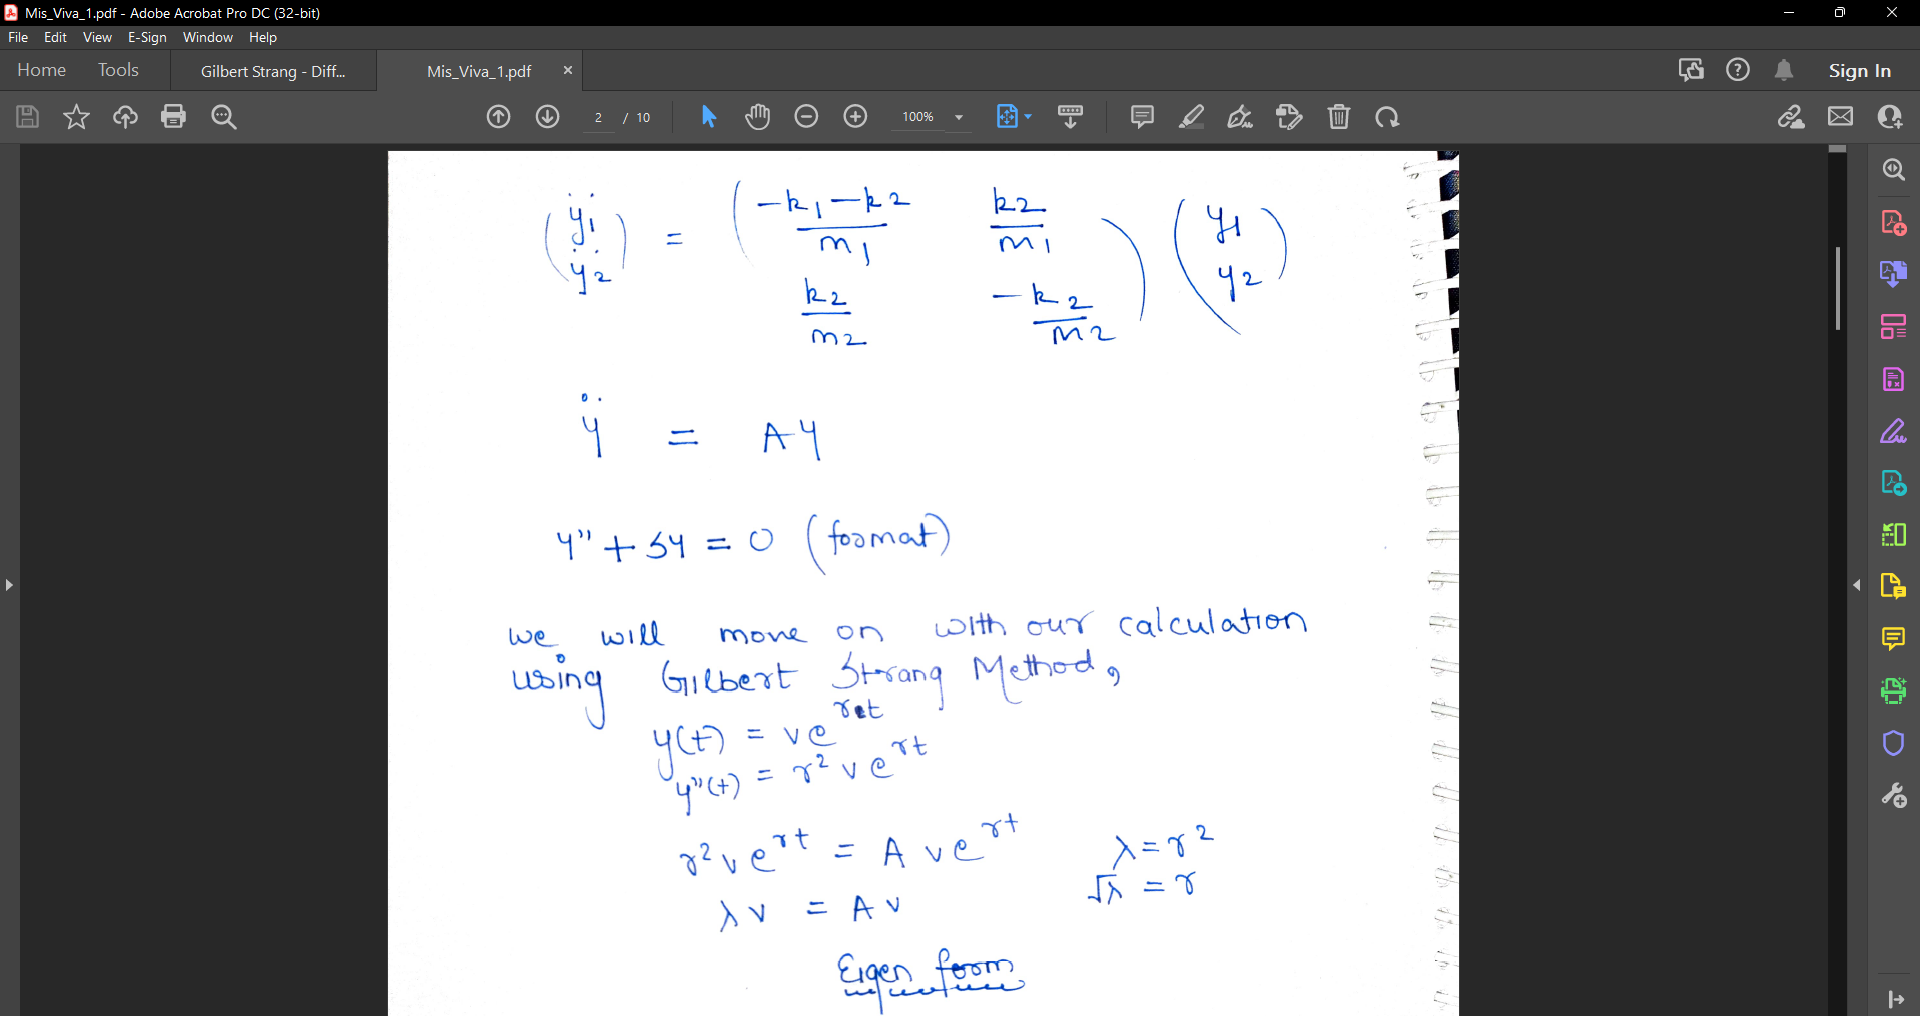 Mis_Viva_1.pdf - Adobe Acrobat Pro DC (32-bit)
File Edit View E-Sign Window Help
Home Tools Gilbert Strang - Diff... Mis_Viva_1.pdf × Sign In
2 / 10 100%
(ÿ1 ÿ2) = ( -k1-k2/m1 k2/m1
k2/m2 -k2/m2 ) (y1 y2)
ÿ = Ay
y" + Sy = 0 (format)
we will move on with our calculation
using Gilbert Strang Method,
y(t) = ve^rt
y"(t) = r² v e^rt
r² v e^rt = A v e^rt λ = r²
λ v = A v √λ = r
Eigen form